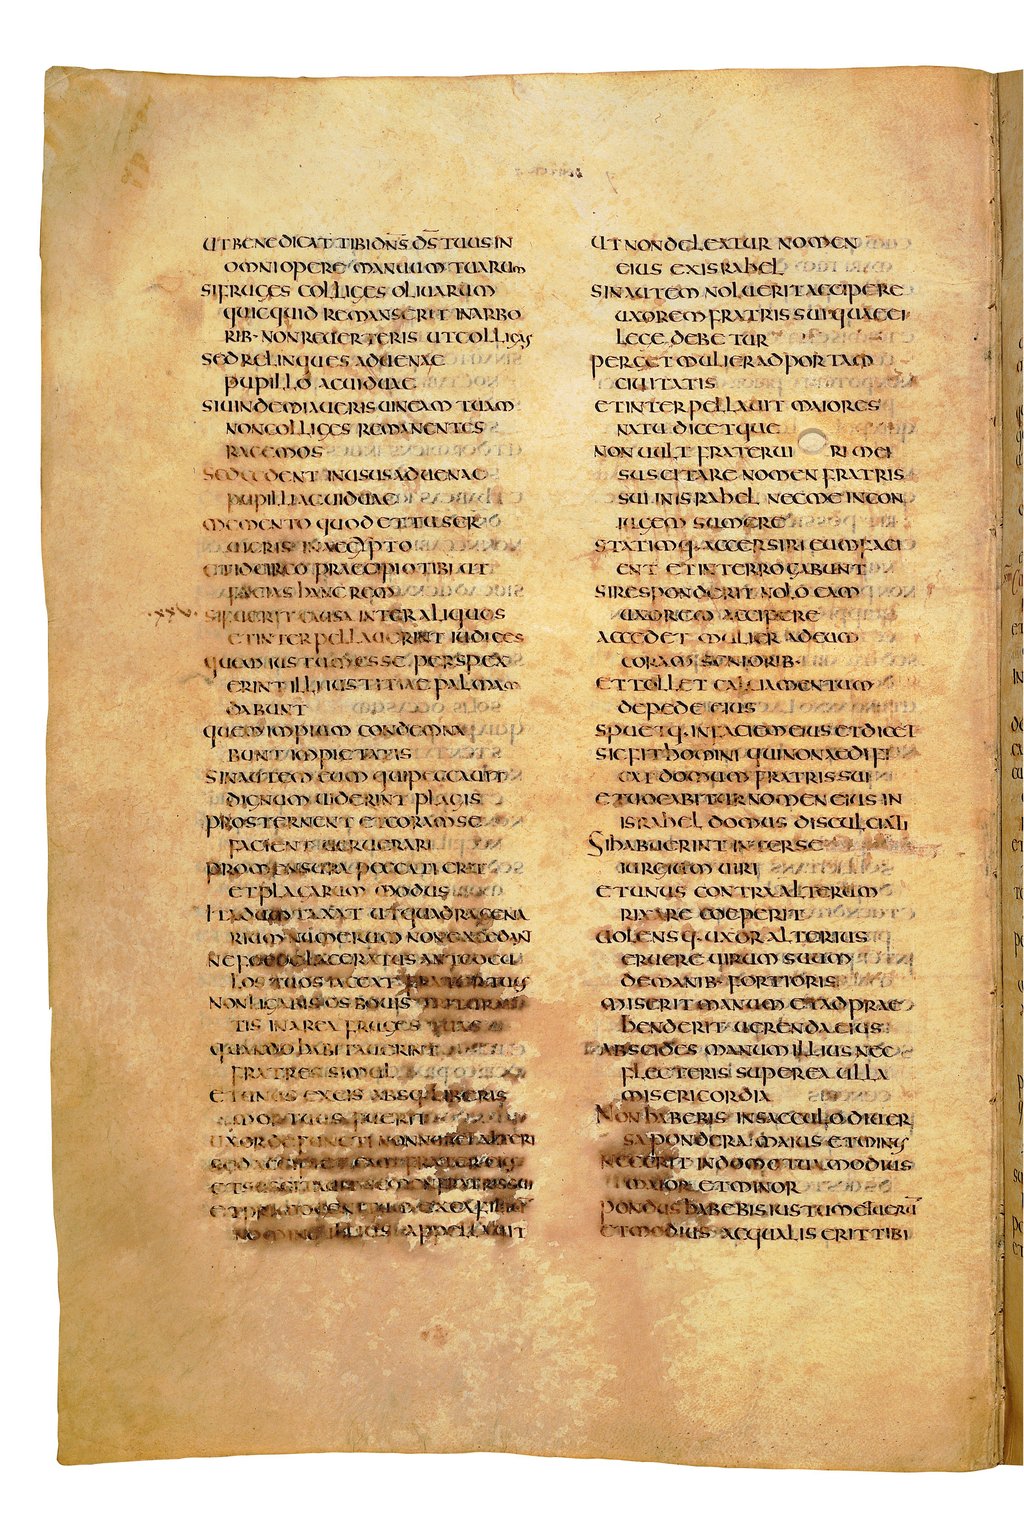 UT BENEDICAT TIBI DN̄S DS̄ TUUS IN
OMNI OPERE MANUUM TUARUM
SI FRUGES COLLIGES OLIUARUM
QUICQUID REMANSERIT IN ARBO
RIB· NON REUERTERIS UT COLLIGAS
SED RELINQUES ADUENAE
PUPILLO AC UIDUAE
SI UINDEMIAUERIS UINEAM TUAM
NON COLLIGES REMANENTES
RACEMOS
SED CEDENT IN USUS ADUENAE
PUPILLI AC UIDUAE
MEMENTO QUOD ET TU SER
UIERIS IN AEGYPTO
ET IDCIRCO PRAECIPIO TIBI UT
FACIAS HANC REM
XXV SI FUERIT CAUSA INTER ALIQUOS
ET INTERPELLAUERINT IUDICES
QUEM IUSTUM ESSE PERSPEX
ERINT ILLI IUSTITIAE PALMAM
DABUNT
QUEM IMPIUM CONDEMNA
BUNT IMPIETATIS
SIN AUTEM EUM QUI PECCAUIT
DIGNUM UIDERINT PLAGIS
PROSTERNENT ET CORAM SE
FACIENT UERUERARI
PRO MENSURA PECCATI ERIT
ET PLAGARUM MODUS
ITA DUMTAXAT UT QUADRAGENA
RIUM NUMERUM NON EXCEDANT
NE FOEDE LACERATUS ANTE OCU
LOS TUOS IACEAT FRATER TUUS
NON LIGABIS OS BOUIS TERENTIS
IN AREA FRUGES TUAS
QUANDO HABITAUERINT
FRATRES SIMUL
ET UNUS EX EIS ABSQ· LIBERIS
MORTUUS FUERIT
UXOR DEFUNCTI NON NUBET ALTERI
SED ACCIPIET EAM FRATER EIUS
ET SUSCITABIT SEMEN FRATRIS SUI
ET PRIMOGENITUM EX EA FILIUM
NOMINE ILLIUS APPELLAUIT
UT NON DELEATUR NOMEN
EIUS EX ISRAHEL
SIN AUTEM NOLUERIT ACCIPERE
UXOREM FRATRIS SUI QUAE EI
LEGE DEBETUR
PERGET MULIER AD PORTAM
CIUITATIS
ET INTERPELLAUIT MAIORES
NATU DICETQUE
NON UULT FRATER UI RI MEI
SUSCITARE NOMEN FRATRIS
SUI IN ISRAHEL NEC ME IN CON
IUGEM SUMERE
STATIMQ· ACCERSIRI EUM FACI
ENT ET INTERROGABUNT
SI RESPONDERIT NOLO EAM
UXOREM ACCIPERE
ACCEDET MULIER AD EUM
CORAM SENIORIB·
ET TOLLET CALCIAMENTUM
DE PEDE EIUS
SPUETQ· IN FACIEM EIUS ET DICET
SIC FIT HOMINI QUI NON AEDIFI
CAT DOMUM FRATRIS SUI
ET UOCABITUR NOMEN EIUS IN
ISRAHEL DOMUS DISCULCIATI
SI HABUERINT INTER SE
IURGIUM UIRI
ET UNUS CONTRA ALTERUM
RIXARE COEPERIT
UOLENSQ· UXOR ALTERIUS
ERUERE UIRUM SUUM
DE MANIB· FORTIORIS
MISERIT MANUM ET ADPRAE
HENDERIT UERENDA EIUS
ABSCIDES MANUM ILLIUS NEC
FLECTERIS SUPER EA ULLA
MISERICORDIA
NON HABEBIS IN SACCULO DIUER
SA PONDERA MAIUS ET MINUS
NEC ERIT IN DOMO TUA MODIUS
MAIOR ET MINOR
PONDUS HABEBIS IUSTUM ET UERŪ
ET MODIUS AEQUALIS ERIT TIBI